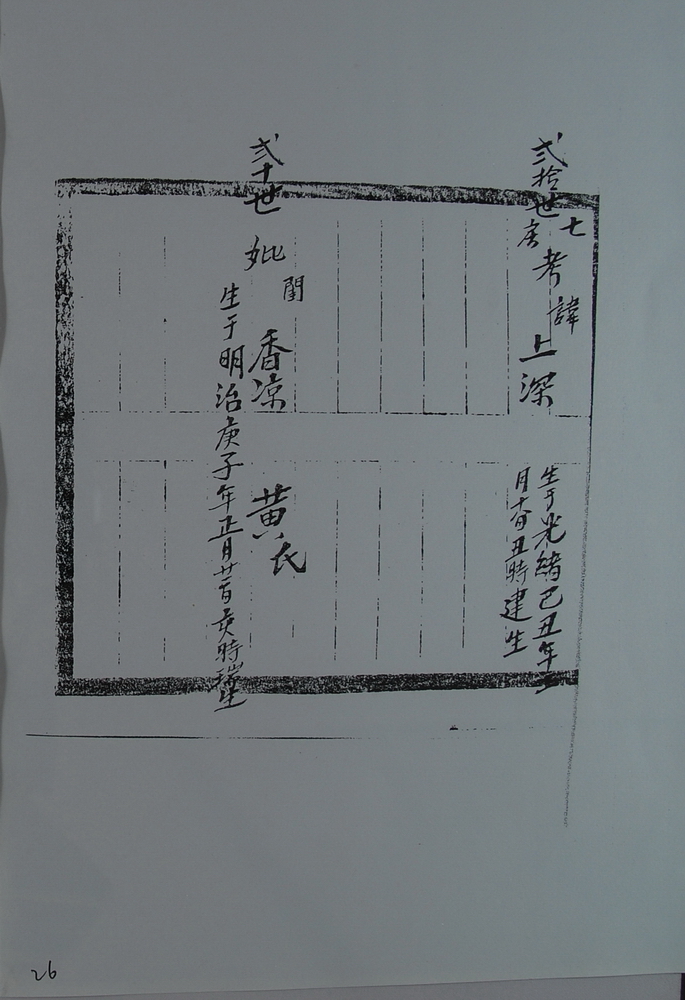 弍拾世
七
房
考
諱
上深
生于光緒己丑年
月 丑時建生
弍十世
妣
閨
香凉
黄氏
生于明治庚子年正月 時瑞生
26